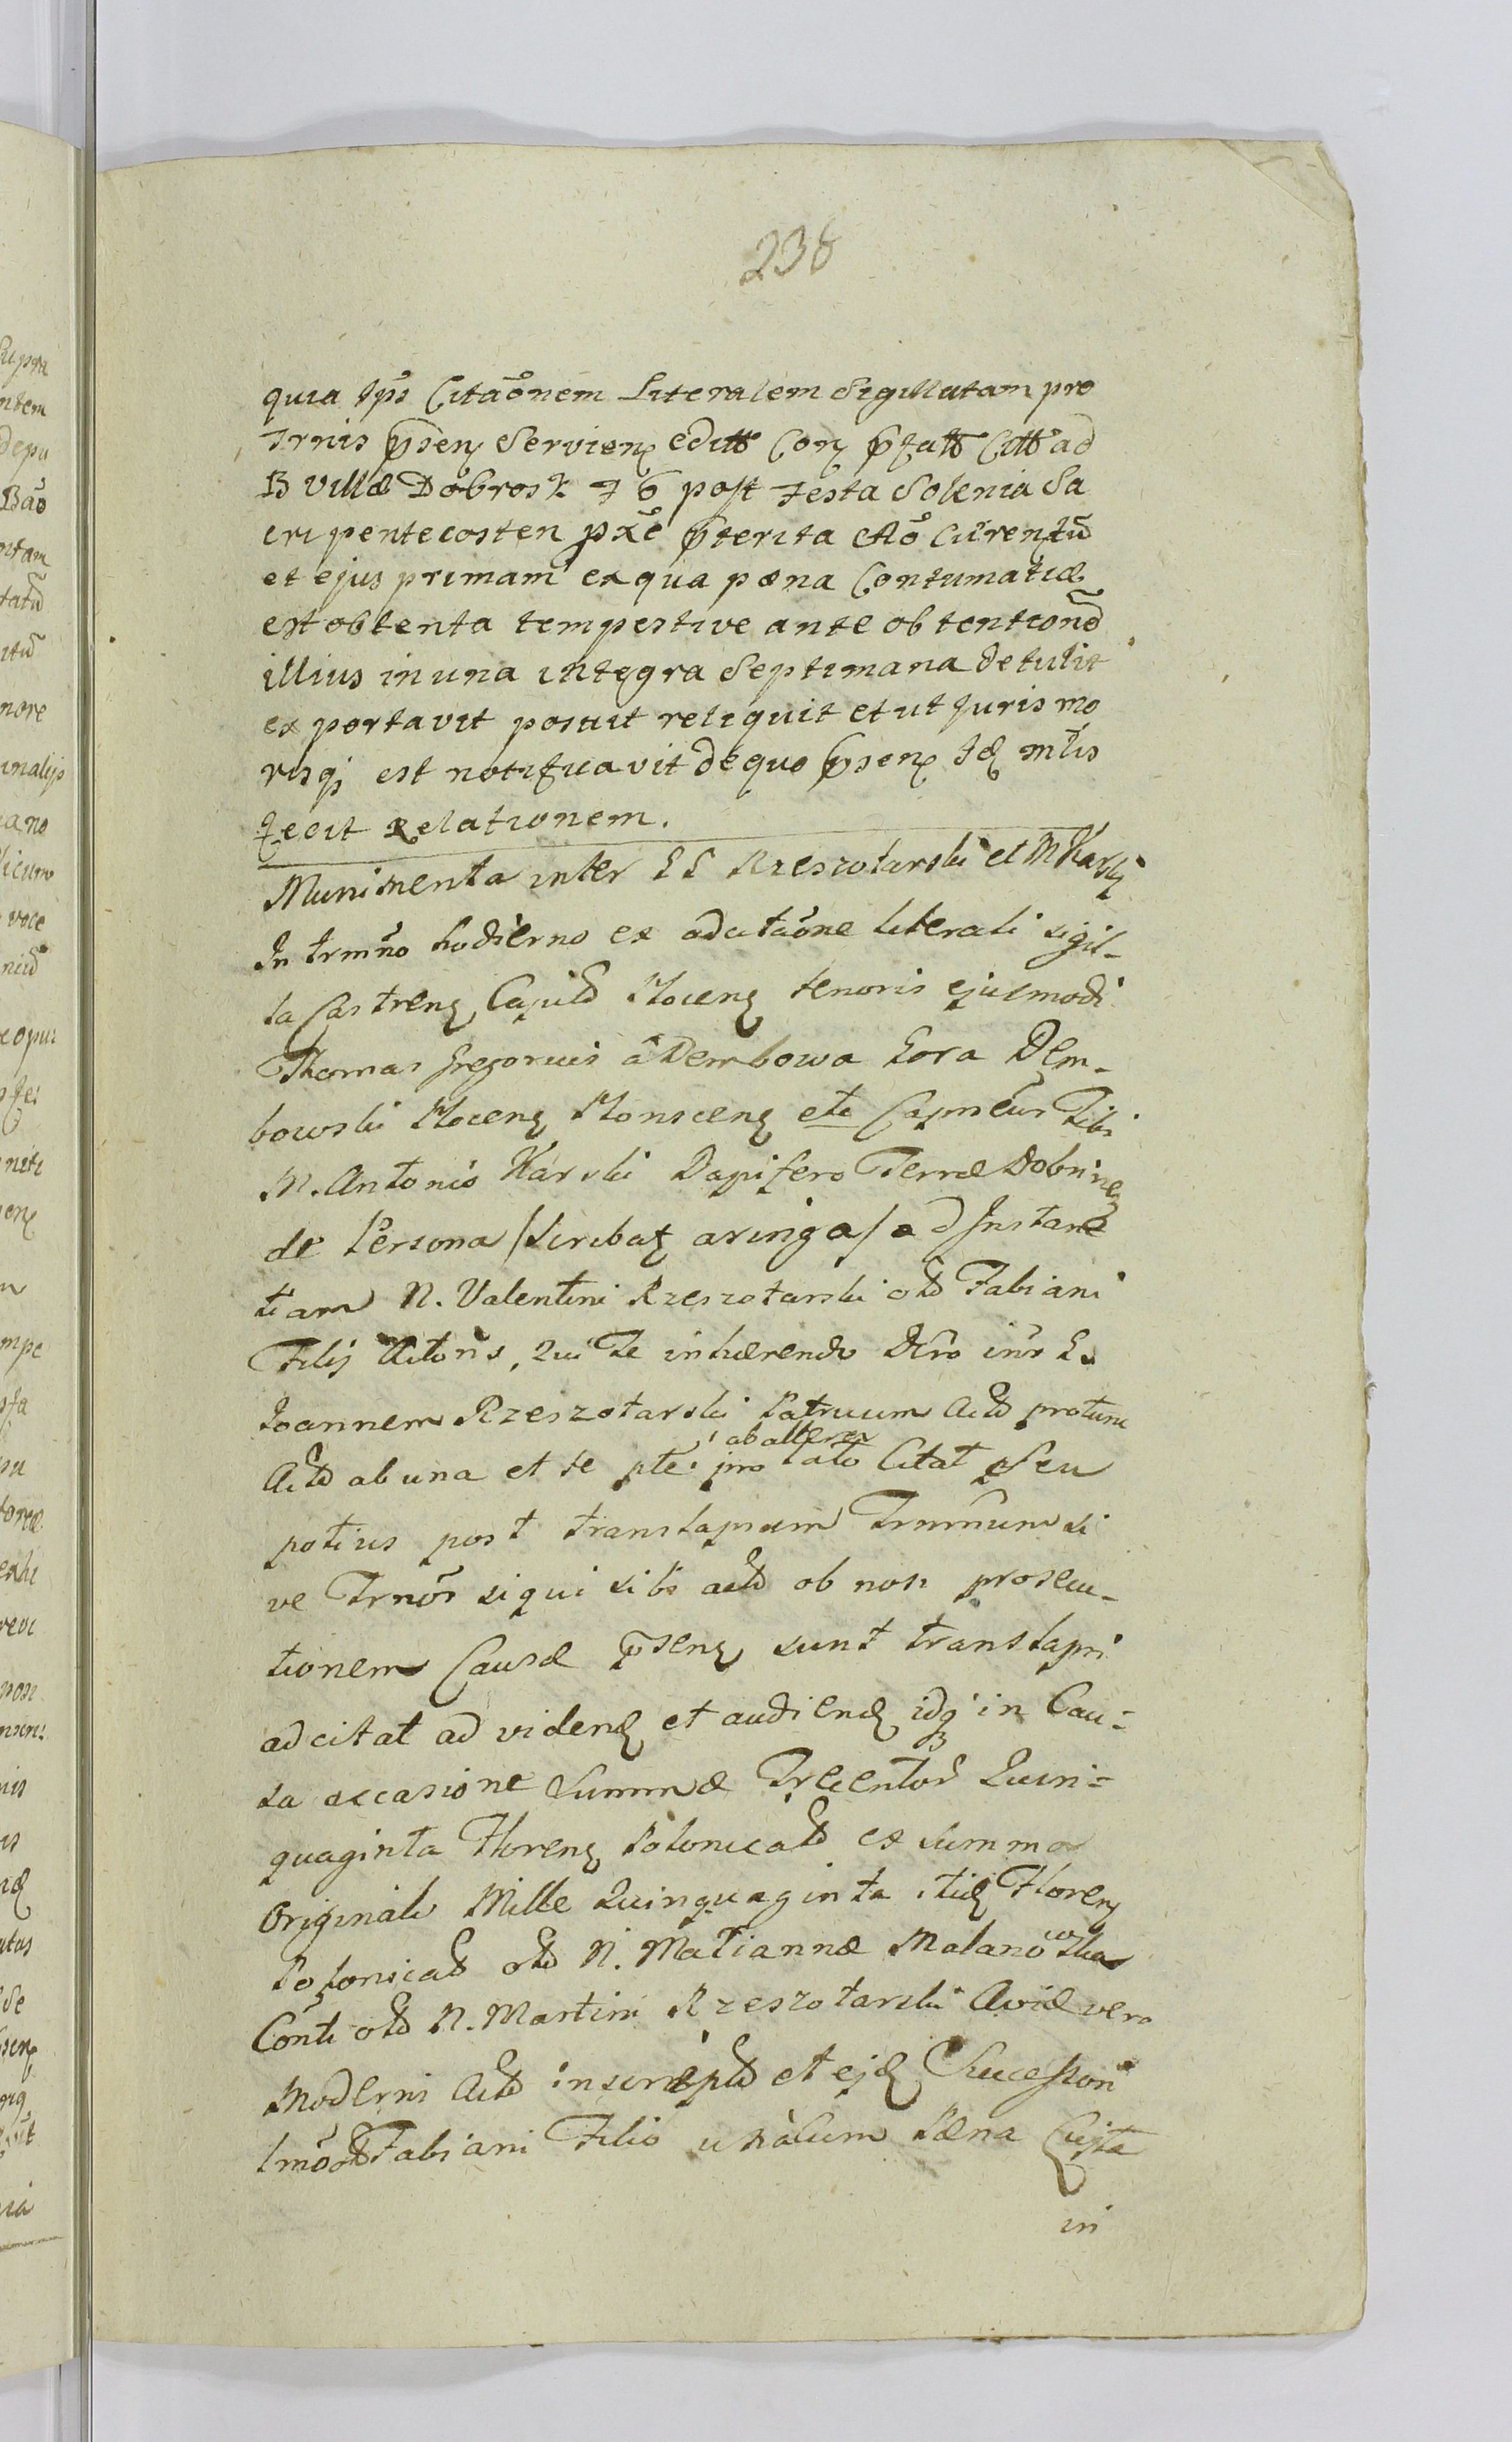 238
quia Ips Citaõnem Literalem Sigillatam pro
Trnis p̃senʒ Servienʒ edittõ Conʒ p̃fattõ Cittõ ad
B villæ Dobrosʒ F 6 post Festa Solenia Sa
cri pentecosten pxẽ p̃terita Aõ Currentũ
et ejus primam ex qua pæna Contumatiæ
est obtenta tempestive ante obtentionẽ
illius in una integra Septimana detulit
exportavit posuit reliquit et ut Juris mo
risqʒ est notificavit de quo p̃senʒ Idʒ mltis
fecit Relationem.
Munimenta inter GG Rzeszotarski et MKarskʒ
In trmño hodierno ex adcitaõne literali sigil-
la Castrenʒ Capitʒ Plocenʒ tenoris ejusmodi
Thomas Gregorius à Dembowa Gora Dem-
bowski Plocenʒ Plonscenʒ etc Capneus Tibi
M. Antonio Karski Dapifero Terræ Dobrinenʒ
de Persona /scribatʒ aringa/ ad Instan
tiam N. Valentini Rzeszotarski olʒ Fabiani
Filij Actoris, Qui Te inhærendo Dcro inr G.
Joannem Rzeszotarski Patruum Actʒ protunc
Actʒ ab una et te pte' ab altera pro lato Citat seu
potius post translapsum Trminum si
ve Trnõs siqui sibi actʒ ob non prosecu-
tionem Causæ p̃senʒ sunt translapsi
adcitat ad videndʒ et audiendʒ idqʒ in Cau-
sa occasione Summæ Trecentorʒ Quin-
quaginta Florenʒ Polonicalʒ ex summa
Originali Mille Quinquaginta itidʒ Florenʒ
Polonicalʒ olʒ N. Mariannæ Malanowska
Conti olʒ N. Martini Rzeszotarski Aviæ vero
Moderni Actʒ inscriptʒ et ejdʒ Successori
Imõ olʒ Fabiani Filio unàcum Pæna
in